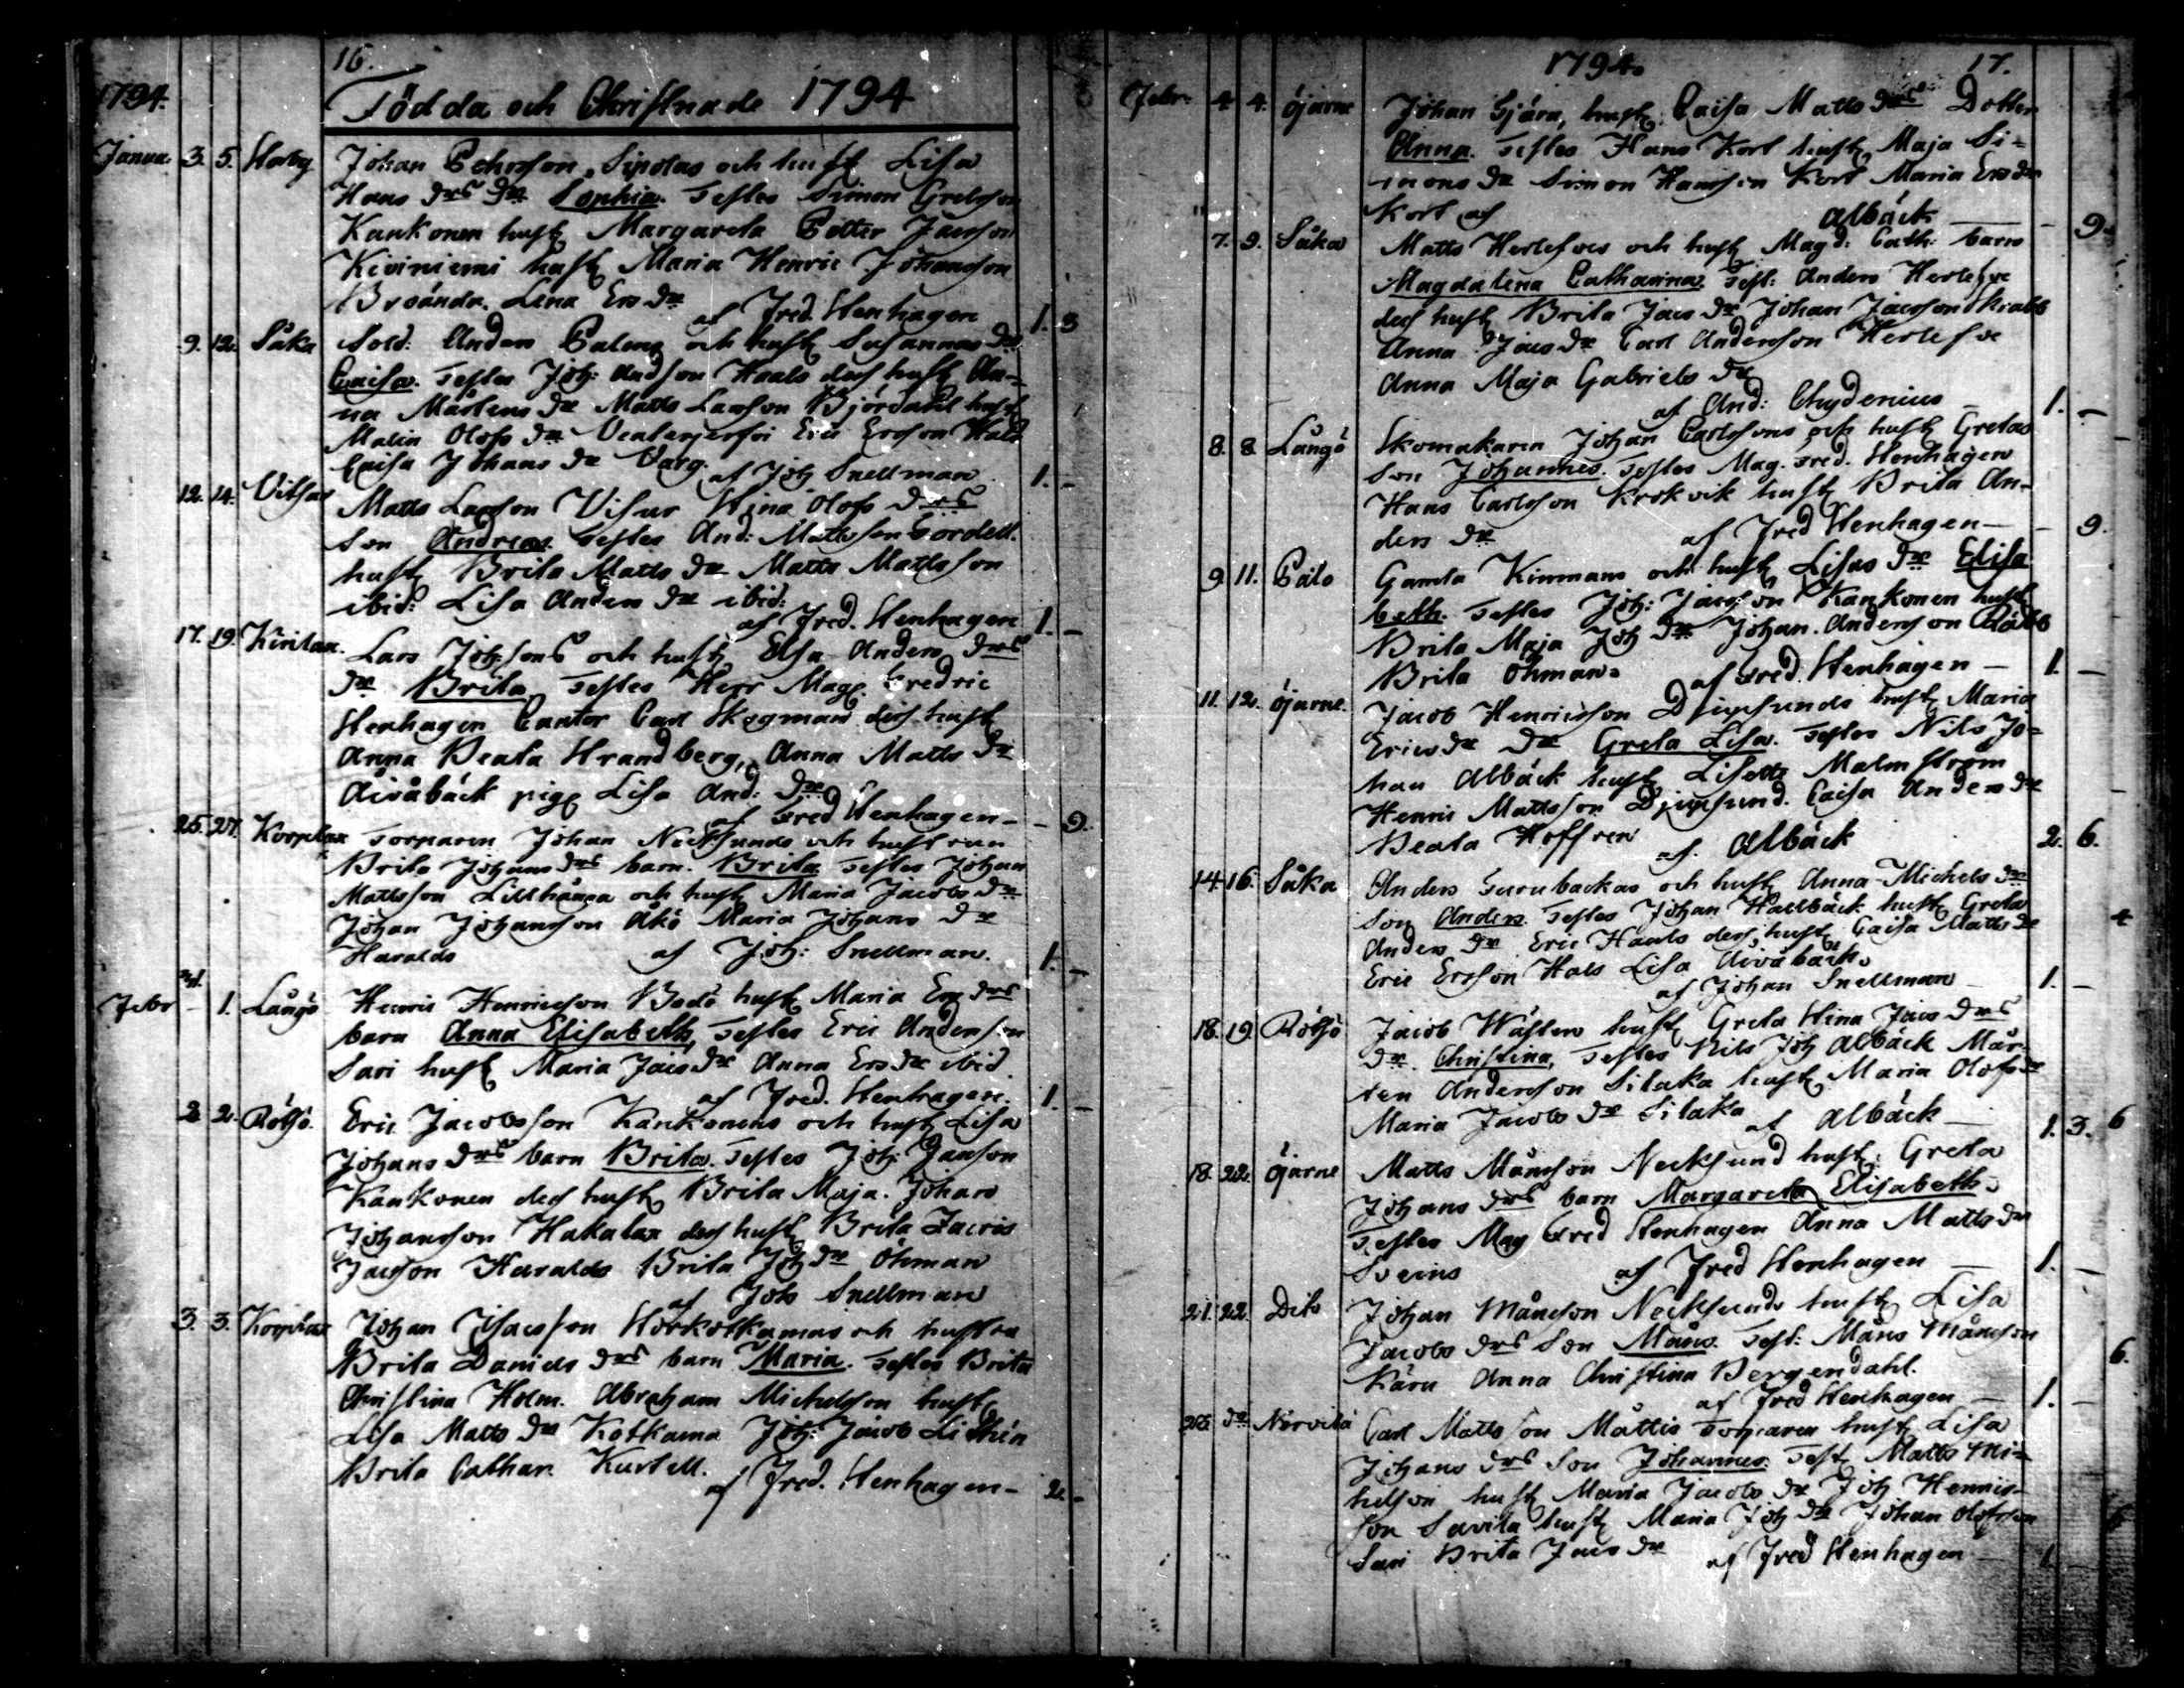 16.
1794. Födda och Christnade 1794
Janua: 3. 5. Storby Johan Pehrsson Sipolas och hust Lisa
Hans drs dr Sophia. Testes Simon Gretsson
Kankonen hust Margareta Petter Jacsson
Kiviniemi hust Maria Henric Johansson
Brsända. Lena Ers dr
af Fred. Stenhagen 1. 3
9. 12. Såka Sold: Anders Palens och hust Susannas dr
Caisa. Testes Joh: Andsson Haals des hust An-
na Mårtens dr Matts Larsson Björdahl hust
Malin Olofs dr Eric Ersson Hals
Caisa Johans dr Varg. af Joh Snellman 1. -
12. 14. Vitsar Matts Larsson Visur Stina Olofs drs
son Andreas. Testes And: Mattsson Gordell.
hust Brita Matts dr Matts Mattsson
ibid: Lisa Anders dr ibid:
af Fred. Stenhagen 1. -
17. 19. Kirilax. Lars Johsons och hust Elsa Anders drs
dr Brita, Testes Herr Mag. Fredric
Stenhagen Cantor Carl Skogman des hust
Anna Beata Strandberg, Anna Matts dr
Aivåbäck pig Lisa And: dr
af Fred Stenhagen - - 9.
25. 27. Korplax Torparen Johan Necksunds och hustrun
Brita Johans drs barn. Brita Testes Johan
Mattsson Lillhånga och hust Maria Jacobs dr
Johan Johansson Åkö Maria Johans dr
Haralds af Joh: Snellman. 1. -
31.
Febr - 1. Långö Henric Henricsson Bodö hust Maria Ers drs
barn Anna Elisabeth, Testes Eric Andersson
Sari hust Maria Jacs dr Anna Ers dr ibid.
af Fred. Stenhagen. 1. -
2 2. Rötsö. Eric Jacobsson Kankonens och hust Lisa
Johans drs barn Brita. Testes Joh: Jansson
Kankonen des hust Brita Maja. Johan
Johansson Hakalax des hust Brita
Jacsson Haralds Brita Joh dr Öhman
af Joh Snellman
3. 3. Korplax Johan Isacsson Storkotkamas och hustru
Brita Daniels drs barn Maria. Testes Brita
Christina Holm. Abraham Michelsson hust
Lisa Matts dr Kotkama Joh: Jacob Lithén
Brita Cathar. Kurtell.
af Fred. Stenhagen - 2. -
1794. 17.
Febr: 4 4. Öjarne Johan Gjäru, hust. Caisa Matts drs Dotter
Anna. Testes Hans Kort hust, Maja Si-
mons dr Simon Hansson Kort Maria Ers dr
Kort af Albäck - 9.
7. 9. Såka Matts Herlefses och hust Magd: Cath: barn
Magdalena Catharina. Test: Anders Herlefse
des hust Brita Jacs dr Johan Jacsson Skrabb
Anna Jacs dr Carl Andersson Herlefse
Anna Maja Gabriels dr
af And: Chydenius 1. -
8. 8. Långö Skomakaren Johan Carlssons och hust Gretas
son Johannes. Testes Mag. Fred. Stenhagen
Hans Carlsson Krokvik hust Brita An-
ders dr af Fred Stenhagen - - 9.
9. 11. Palo Gamla Kinmans och hust Lisas dr Elisa
beth. Testes Joh: Jacsson Kankonen hust
Brita Maja Joh dr Johan. Andersson
Brita Öhman. af Fred. Stenhagen - 1. -
11. 12. Öjarne. Jacob Henricsson Djupsunds hust Maria
Erics dr dr Greta Lisa. Testes Nils Jo-
han Albäck hust Lisette Malmström
Henric Mattsson Djupsund. Caisa Anders dr
Beata Hoffren af. Albäck 2. 6.
14. 16. Såka Anders Gurubackas och hust Anna Michels dr
son Anders. Testes Johan Hallbäck hust Greta
Anders dr Eric Haals des hust Caisa Matts dr
Eric Ersson Hals Lisa Aivåbäck.
af Johan Snellman 1. -
4
18. 19. Rötsö Jacob Wästers hust Greta Stina Jacs drs
dr. Christina, Testes Nils Joh Albäck Mår-
ten Andersson Silaka hust Maria Olofs dr
Maria Jacobs dr Silaka af Albäck - 1. 3. 6
18. 22. Öjarne Matts Månsson Necksund hust: Greta
Johans drs barn Margareta Elisabeth.
Testes Mag Fred Stenhagen Anna Matts dr
Sveins af Fred Stenhagen - 1. -
21. 22. Dito Johan Månsson Necksunds hust Lisa
Jacobs drs son Måns. Test: Måns Månsson
Käru Anna Christina Bergendahl.
af Fred Stenhagen - 1. -
6.
do Nirvilä Carl Mattsson Mattis Torparen hust Lisa
Johans drs son Johannes. Test Matts Mi-
helson hust Maria Jacobs dr Joh Henrics-
son Savila hust Maria Joh dr Johan Olofsson
Sari Brita Jacs dr af Fred Stenhagen - 1.
6